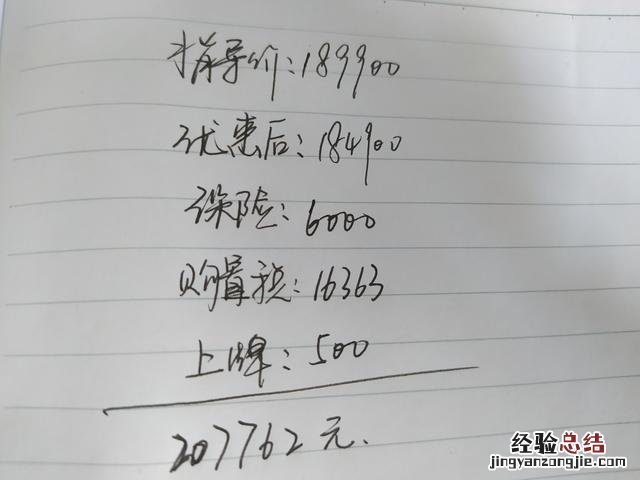 指导价:189900
优惠后:184900
保险:6000
购置税:16363
上牌:500
207762元.
经验总结
jingyanzongjie.com